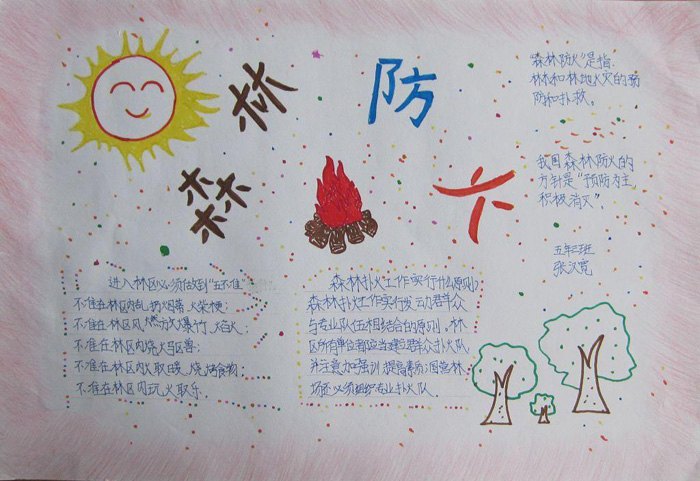 森林防火
"森林防火"是指
林和林地火灾的预
防和扑救。
我国森林防火的
方针是"预防为主,
积极消灭"
五年三班
进入林区必须做到"五不准":
不准在林区内乱扔烟蒂、火柴梗;
不准在林区风燃放爆竹、焰火;
不准在林区内烧火驱兽;
不准在林区内火取暖、烧烤食物;
不准在林区内玩火取乐.
森林扑火工作实行什么原则?
森林扑火工作实行发动群众
与专业队伍相结合的原则,林
区所有单位都应当建立群众扑火队
并注意加强训,提高素质;国营林
场还必须组织专业扑火队.